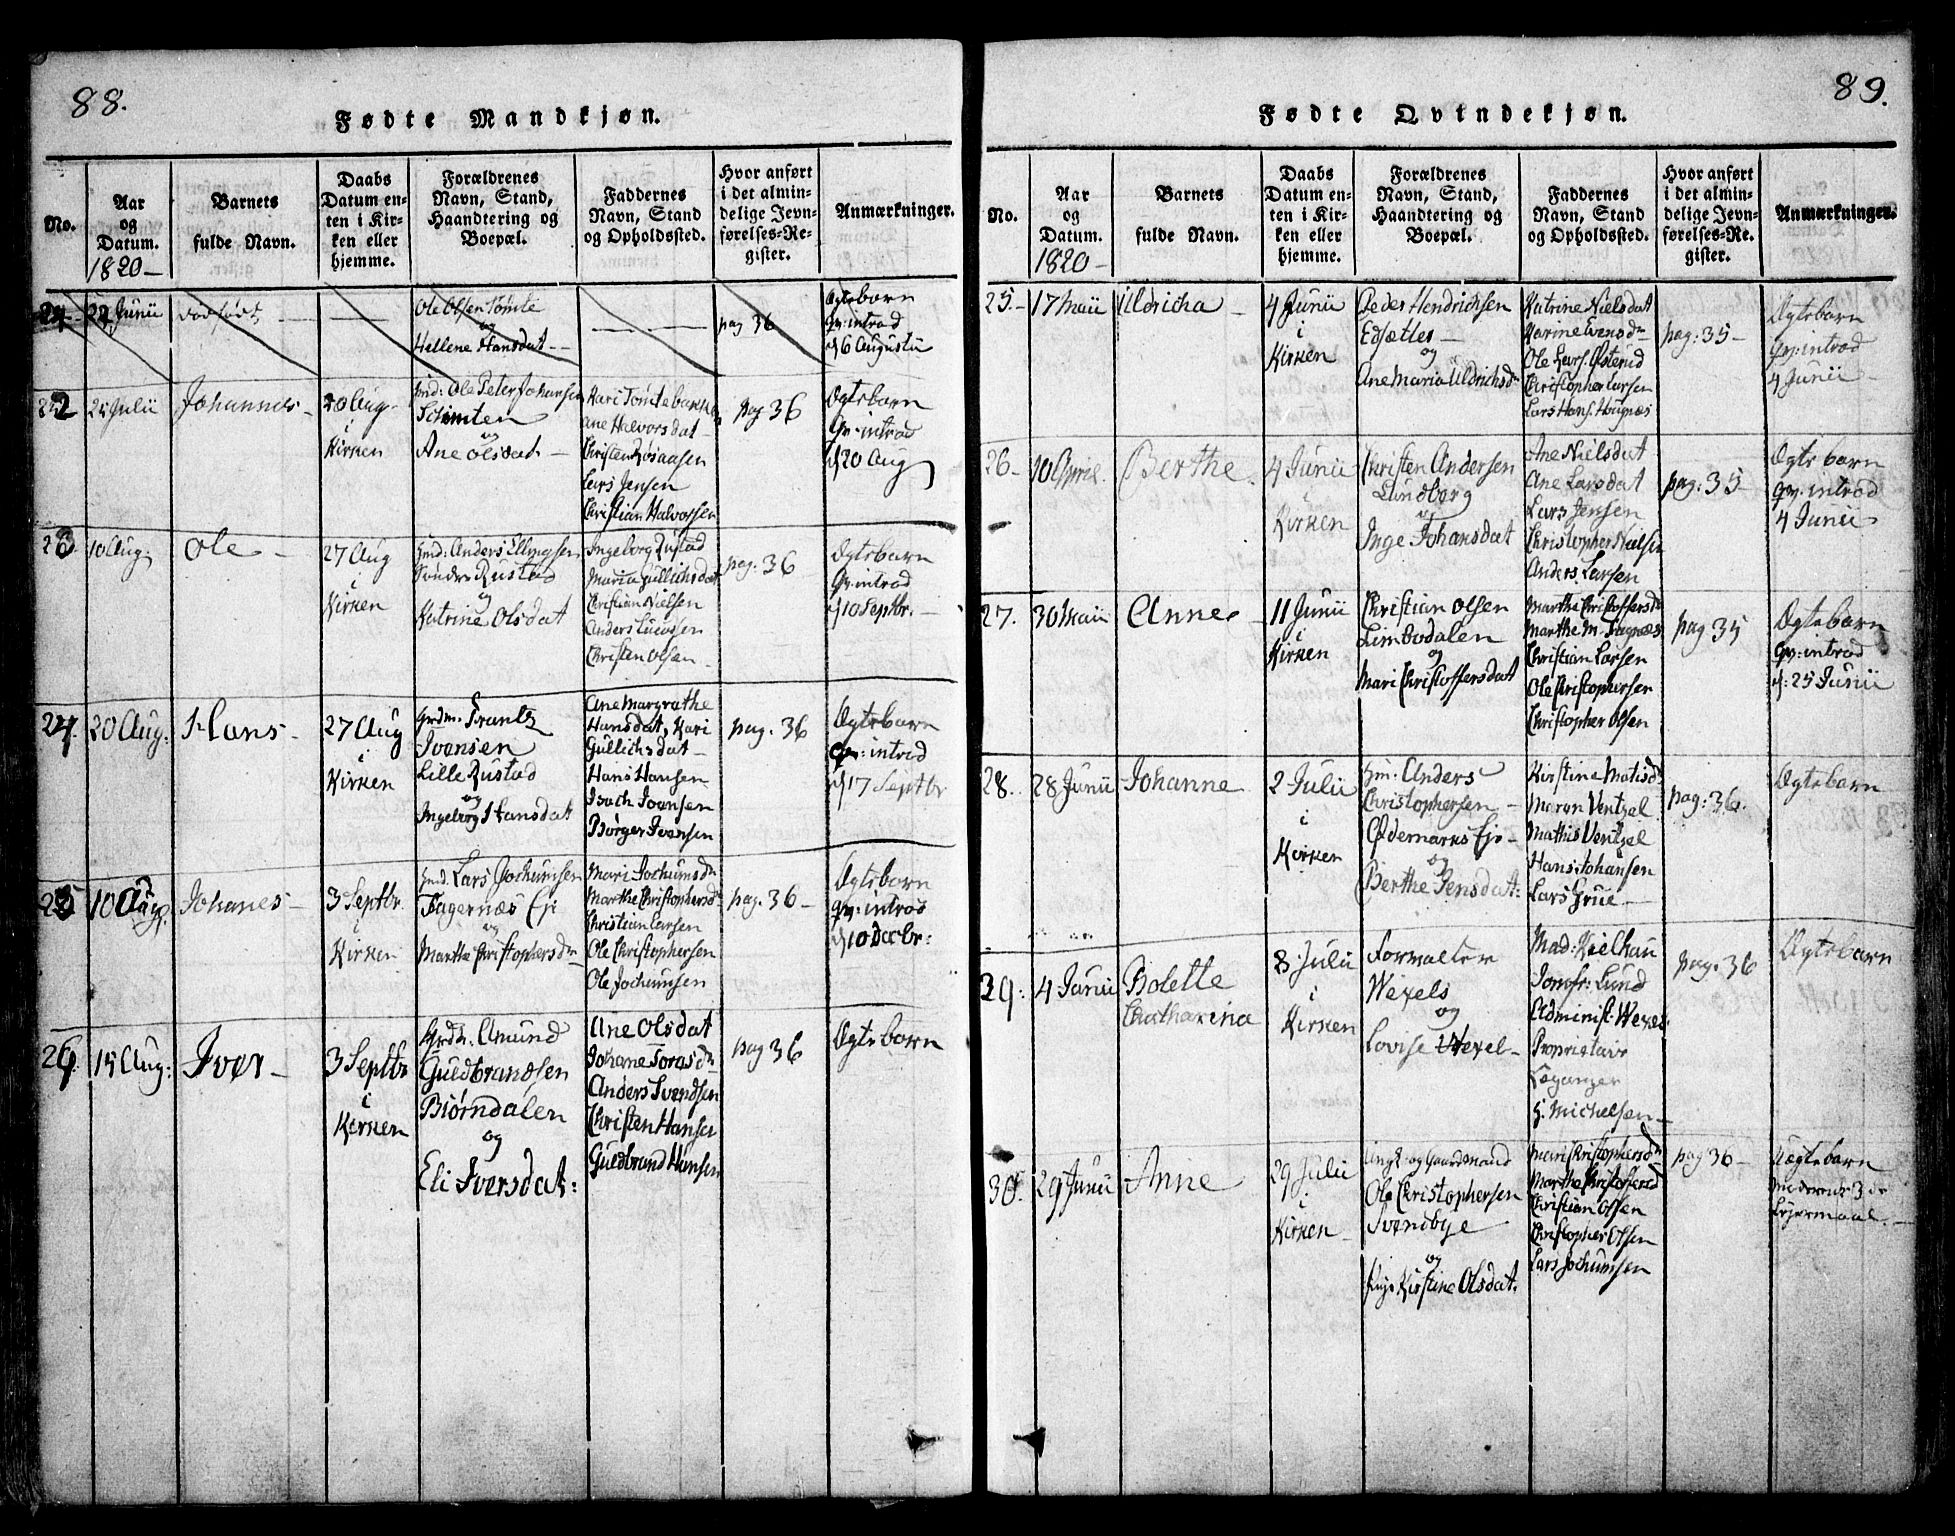 88.
Fødte Mandkjøn.
No.
Aar og Datum.
1820 —
Barnets fulde Navn.
Daabs Datum enten i Kirken eller hjemme.
Forældrenes Navn, Stand, Haandtering og Boepæl.
Faddernes Navn, Stand og Opholdssted.
Hvor anført i det almindelige Jevnførelses-Register.
Anmærkninger.
22 Junii
dødfødt
Ole Olsen Tømte
og
Hellene Hansdat —
pag 36
Ægtebarn
Qv: introd
d 6 Augustii
22
Johannes —
20 Aug
i
Kirken
Gmd: Ole Peter Johansen
og
Ane Olsdat —
Kari Tømtebakken
Ane Halvorsdat
Lars Jensen
Christian Halvorsen
pag 36
Ægtebarn
Qv: introd
d 20 Aug
23
10 Aug:
Ole —
27 Aug
i
Kirken
Gmd: Anders Ellingsen
Søndre Rustad
og
Katrine Olsdat
Ingeborg Rustad
Maria Gullichsdat
Christian Nielsen
Christen Olsen —
pag: 36
Ægtebarn
Qv: introd
d 10 Septbr. —
24
20 Aug:
Hans —
27 Aug
i
Kirken
Grdm. Frantz
Iversen
Lille Rustad
og
Ingeborg Hansdat
Ane Margrethe
Hansdat, Kari
Gullichsdat —
Hans Hansen
Isach Iversen
Børger Iversen
pag. 36
Ægtebarn
Qv: introd
d 17 Septbr
25
10 Aug:
Johanes —
3 Septbr.
i
Kirken
Gmd. Lars Jochumsen
Fagernæs Eje
og
Marthe Christophersdr
Mari Jochumsdr
Marthe Christophersdr
Christian Larsen
Ole Christophersen
Ole Jochumsen
pag: 36 —
Ægtebarn
Qv: introd
d 10 Decbr:
26
15 Aug:
Iver —
3 Septbr
i
Kirken
Grdm. Amund
Guldbrandsen
Biørndalen
og
Eli Iversdat:
Ane Olsdat
Johane Torasdr
Anders Svendsen
Christen Hansen
Guldbrand Hansen
pag 36
Ægtebarn
89.
Fødte Qvindekjøn.
No.
Aar og Datum.
1820 —
Barnets fulde Navn.
Daabs Datum enten i Kirken eller hjemme.
Forældrenes Navn, Stand, Haandtering og Boepæl.
Faddernes Navn, Stand og Opholdssted.
Hvor anført i det almindelige Jevnførelses-Register.
Anmærkninger.
25 —
17 Maii
Uldricha
4 Junii
i
Kirken
Peder Hendrichsen
og
Ane Maria Uldrichsdr
Katrine Nielsdat
Karine Evensdr
Ole Lars. Østerud
Christopher Larsen
Lars Hans. Hougnæs
pag: 35 —
Ægtebarn
Qv: introd
4 Junii
26 —
10 Aprile.
Berthe
4 Junii
i
Kirken
Christen Andersen
Lundborg
og
Inge Johansdat
Ane Nielsdat
Ane Larsdat
Lars Jensen
Christopher Nielsen
Anders Larsen
pag: 35 —
Ægtebarn
Qv: introd
4 Junii
27.
30 Maii
Anne
11 Junii
i
Kirken
Christian Olsen
Limbodalen
og
Mari Christoffersdat
Marthe Christoffersdr
Marthe M. Fagnæs
Christian Larsen
Ole Christophersen
Christopher Olsen
pag 35
Ægtebarn
Qv: introd
d: 25 Junii
28.
28 Junii
Johanne
2 Julii
i
Kirken
Gm: Anders
Christophersen —
Ødemarks Eje —
og
Berthe Jensdat:
Kirstine Matisdr
Maren Ventzel
Mathis Ventzel
Hans Johansen
Lars Grue —
pag: 36.
Ægtebarn
29:
4 Junii
Bolette
Chatharina
8 Julii
i
Kirken
Forvalter
Wexels
og
Lovise Wexel —
Mad: Kielhau
Jomfr: Lund
Administ: Wexel
Proprietair
Løganger
H. Michelsen —
pag: 36
Ægtebarn
30.
29 Junii
Anne
29 Julii
i
Kirken —
Ungk. og Gaardmand
Ole Christophersen
Svendbye
og
Pige Kirstine Olsdat.
Mari Christophersdr
Marthe Christoffersd
Christian Olsen
Christopher Olsen
Lars Jochumsen
pag 36 —
Uægtebarn
Moderens 3de
Lejermaal. —